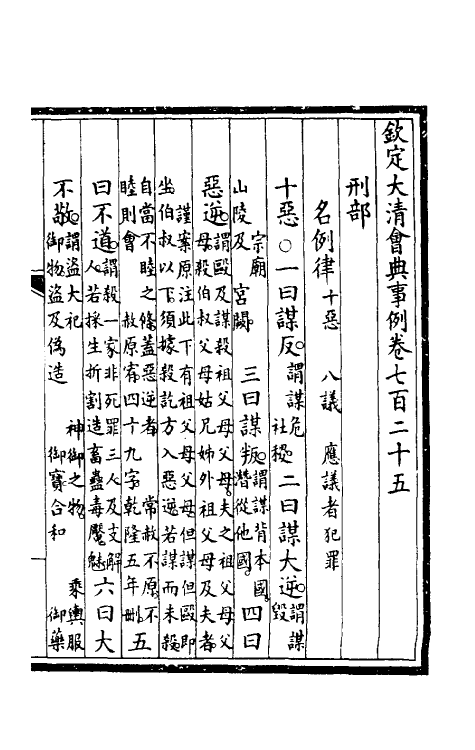 欽定大清會典事例卷七百二十五
刑部
名例律 十惡 八議 應議者犯罪
十惡○一曰謀反謂謀危社稷二曰謀大逆謂謀毀
宗廟山陵及宮闕三曰謀叛謂謀背本國潛從他國四曰
惡逆謂毆及謀殺祖父母父母夫之祖父母父母殺伯叔父母姑兄姊外祖父母及夫者
謹案原注此下有祖父母父母但謀但毆即坐伯叔以下須據殺訖方入惡逆若謀而未殺
自當不睦之條蓋惡逆者常赦不原不睦則會赦原宥四十九字乾隆五年刪五
曰不道謂殺一家非死罪三人及支解人若採生折割造畜蠱毒魘魅六曰大
不敬謂盜大祀神御之物乘輿服御物盜及偽造御寶合和御藥